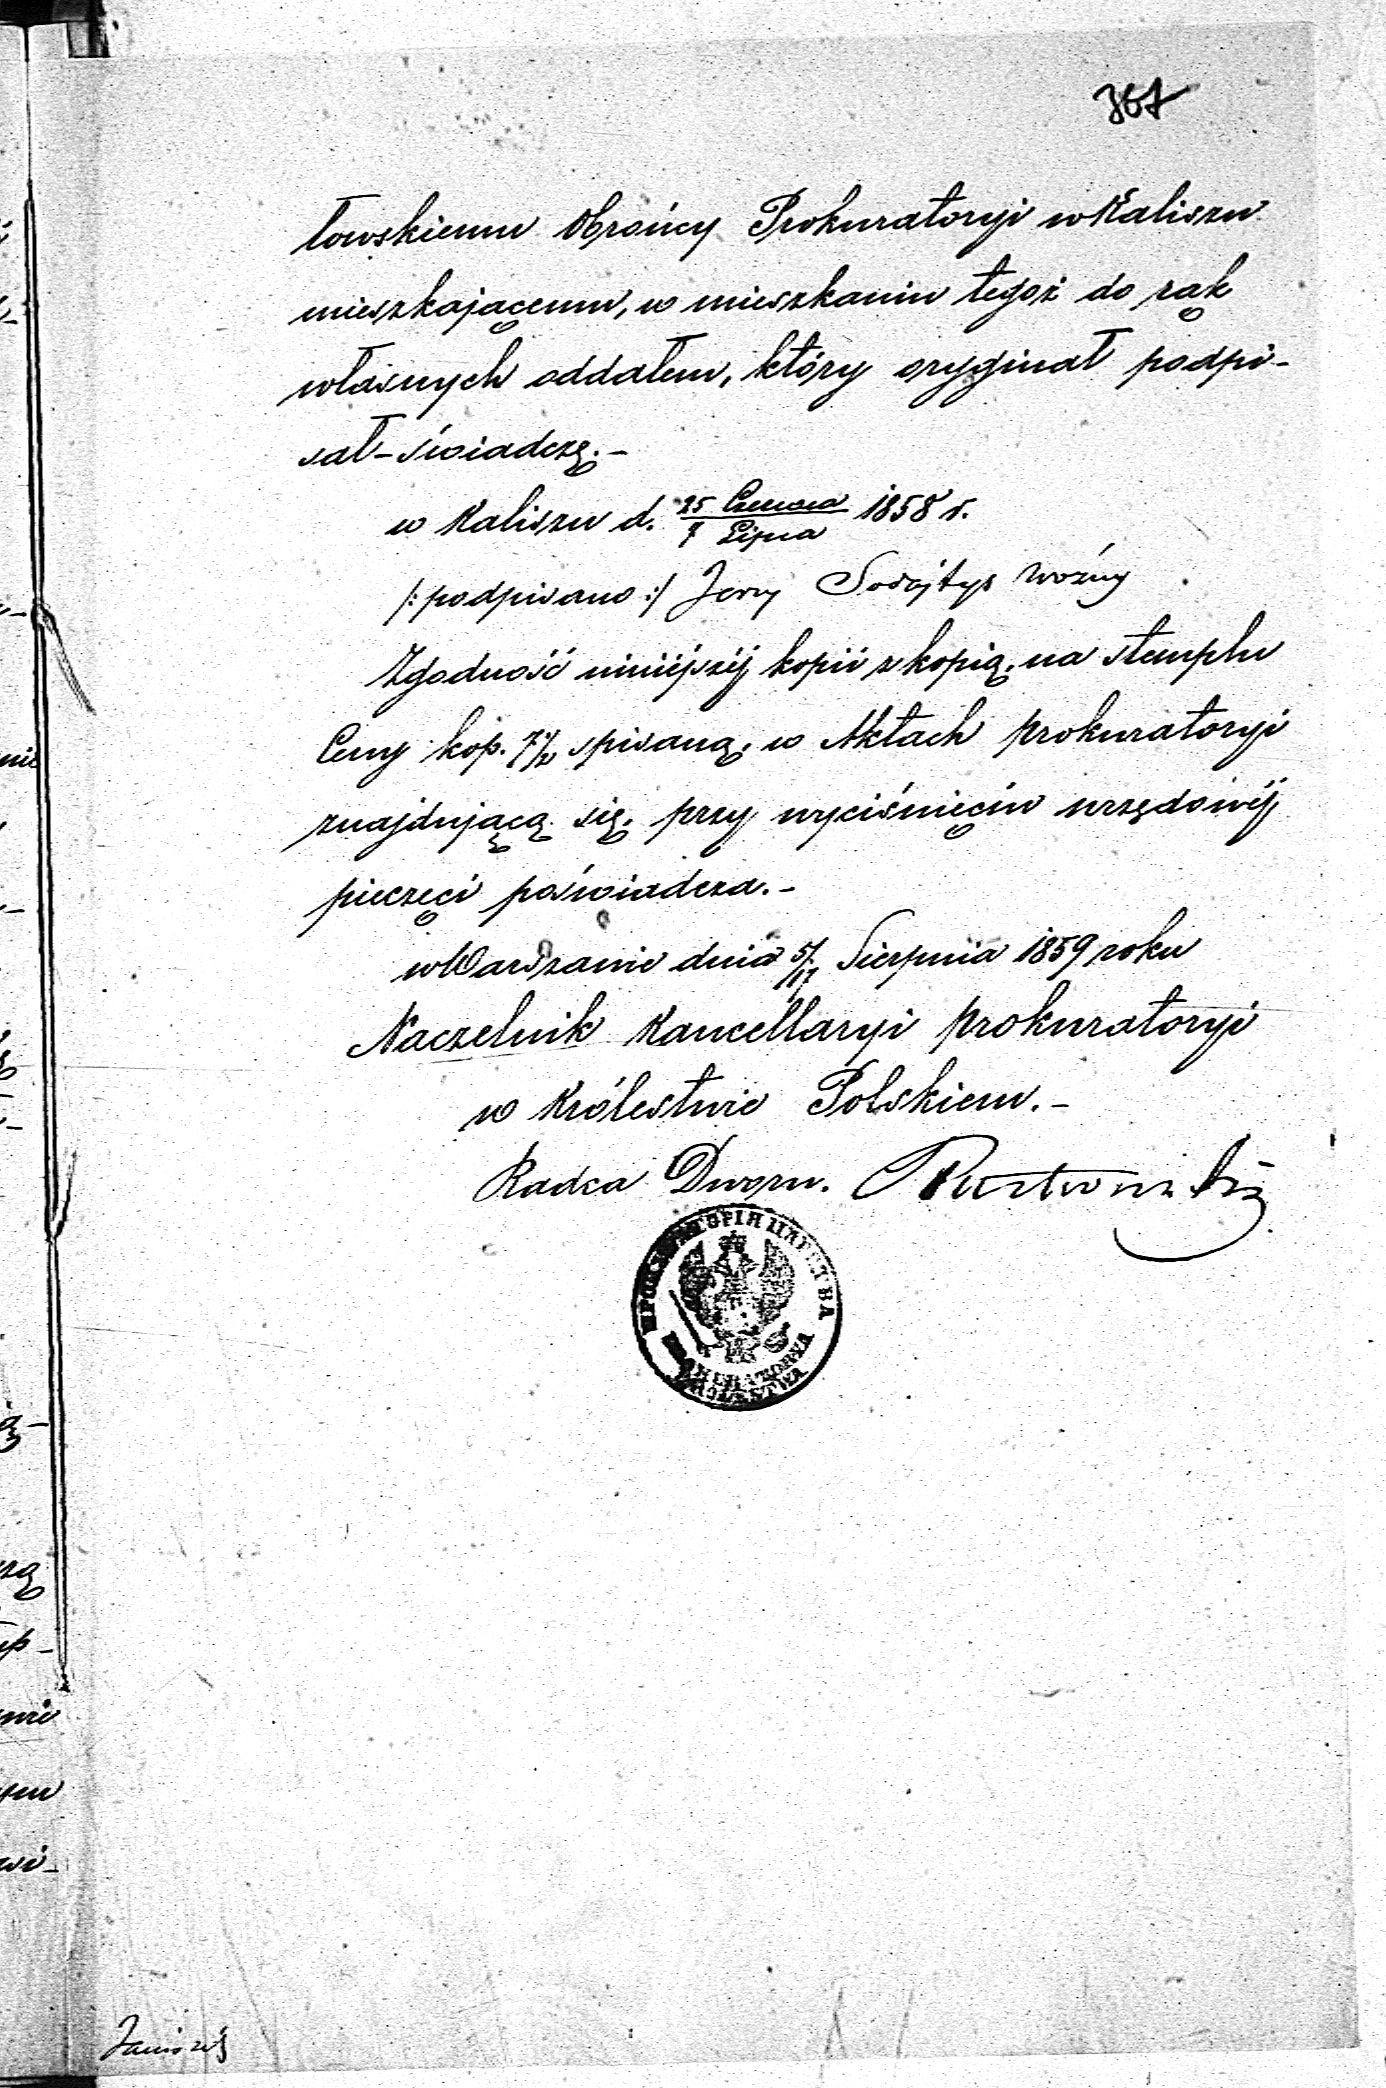 367
towskiemu Obrońcy Prokuratoryi w Kaliszu
mieszkającemu, w mieszkaniu tegoż do rąk
własnych oddałem, który oryginał podpi-
sał - świadczę. -
w Kaliszu d. 25 Czerwca / 7 Lipca 1858 r.
/: podpisano :/ Jerzy Woźny
Zgodność niniéjszéj kopii z kopią na stemplu
Ceny kop. 7½ spisaną w Aktach prokuratoryi
znajdującą się przy wyciśnięciu urzędowéj
pieczęci poświadcza. -
w Warszawie dnia 5/17 Sierpnia 1859 roku
Naczelnik Kancellaryi prokuratoryi
w Królestwie Polskiem. -
Radca Dworu.
ПРОКУРАТОРІЯ ЦАРСТВА